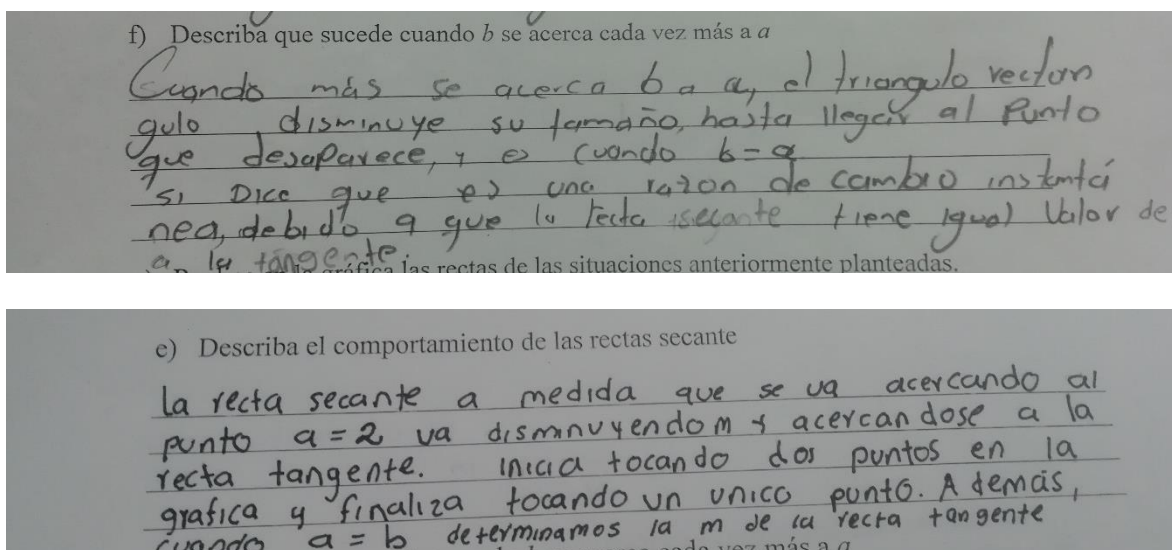 f) Describa que sucede cuando b se acerca cada vez más a a
Cuando más se acerca b a a, el triangulo rectan
gulo, disminuye su tamaño, hasta llegar al Punto
que desaparece, y es cuando b=a
si Dice que es una razon de cambio instantá
nea, debido a que la recta secante tiene igual Valor de
a la tangente.
gráfica las rectas de las situaciones anteriormente planteadas.
e) Describa el comportamiento de las rectas secante
la recta secante a medida que se va acercando al
punto a=2 va disminuyendo m y acercandose a la
recta tangente. inicia tocando dos puntos en la
grafica y finaliza tocando un unico punto. A demás,
cuando a=b determinamos la m de la recta tangente
cada vez más a a